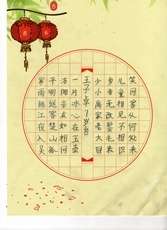 寒雨连江夜入吴
平明送客楚山孤
洛阳亲友如相问
一片冰心在玉壶
王子 7岁
少小离家老大回
乡音无改鬓毛衰
儿童相见不相识
笑问客从何处来